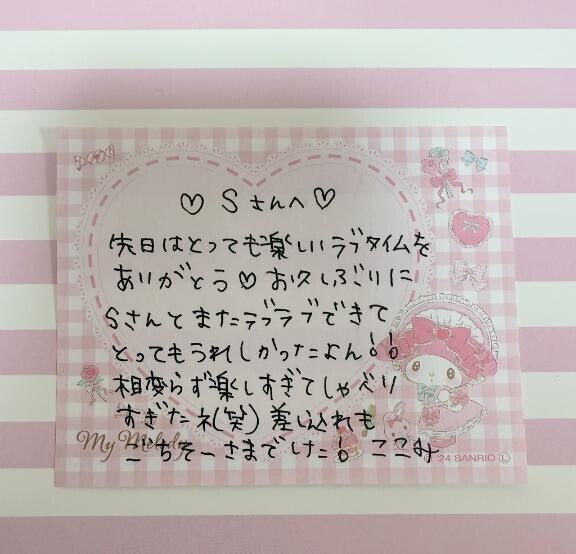 ♡ Sさんへ♡
先日はとっても楽しいラブタイムを
ありがとう♡お久しぶりに
Sさんとまたラブラブできて
とってもうれしかったよん!!
相変らず楽しすぎてしゃべり
すぎたネ(笑)差し入れも
ごちそーさまでした! ここみ
My Melody
© '24 SANRIO Ⓛ